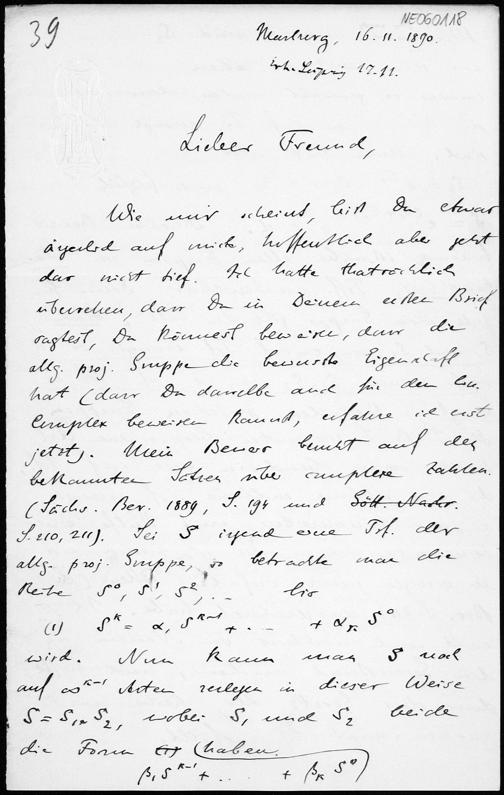 39
NEO60118
Marburg, 16.11.1890.
Leipzig 17.11.
Lieber Freund,
Wie mir scheint, bist Du etwas
ärgerlich auf mich, hoffentlich aber geht
das nicht tief. Ich hatte thatsächlich
übersehen, dass Du in Deinem ersten Brief
sagtest, Du könnest beweisen, dass die
allg. proj. Gruppe die bewusste Eigenschaft
hat (dass Du dasselbe auch für den lin.
Complex beweisen kannst, erfahre ich erst
jetzt). Mein Beweis beruht auf den
bekannten Sätzen über complexe Zahlen.
(Sächs. Ber. 1889, S. 194 und Gött. Nachr.
S. 210, 211). Sei S irgend eine Tsf. der
allg. proj. Gruppe, so betrachte man die
Reihe S⁰, S¹, S², .. bis
(1) Sᵏ = α₁ Sᵏ⁻¹ + .. + αₖ S⁰
wird. Nun kann man S noch
auf ∞ᵏ⁻¹ Arten zerlegen in dieser Weise
S = S₁ S₂, wobei S₁ und S₂ beide
die Form (1) haben.
β₁ Sᵏ⁻¹ + .... + βₖ S⁰)